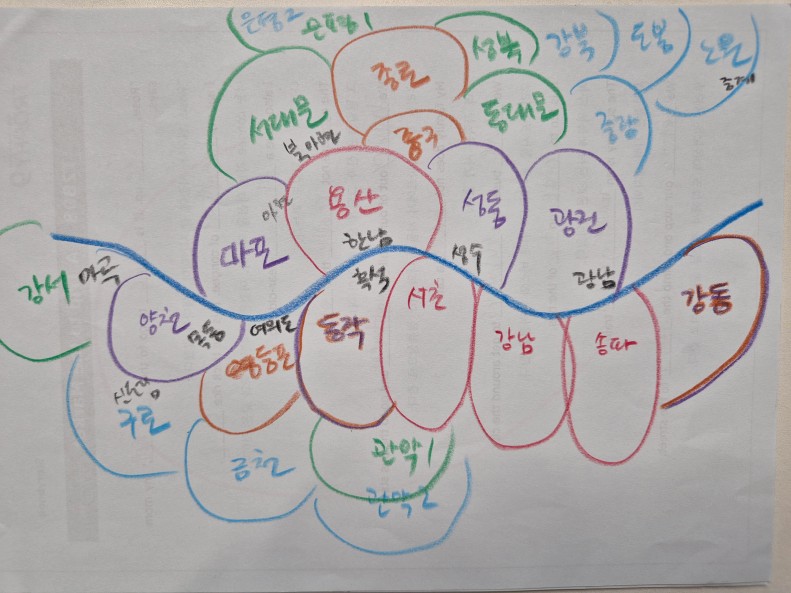 은평2
은평1
성북
강북
도봉
노원
중계
종로
서대문
북아현
중구
동대문
중랑
아현
마포
용산
한남
성동
성수
광진
광남
강서
마곡
양천
목동
여의도
영등포
흑석
동작
서초
강남
송파
강동
신도림
구로
금천
관악1
관악2